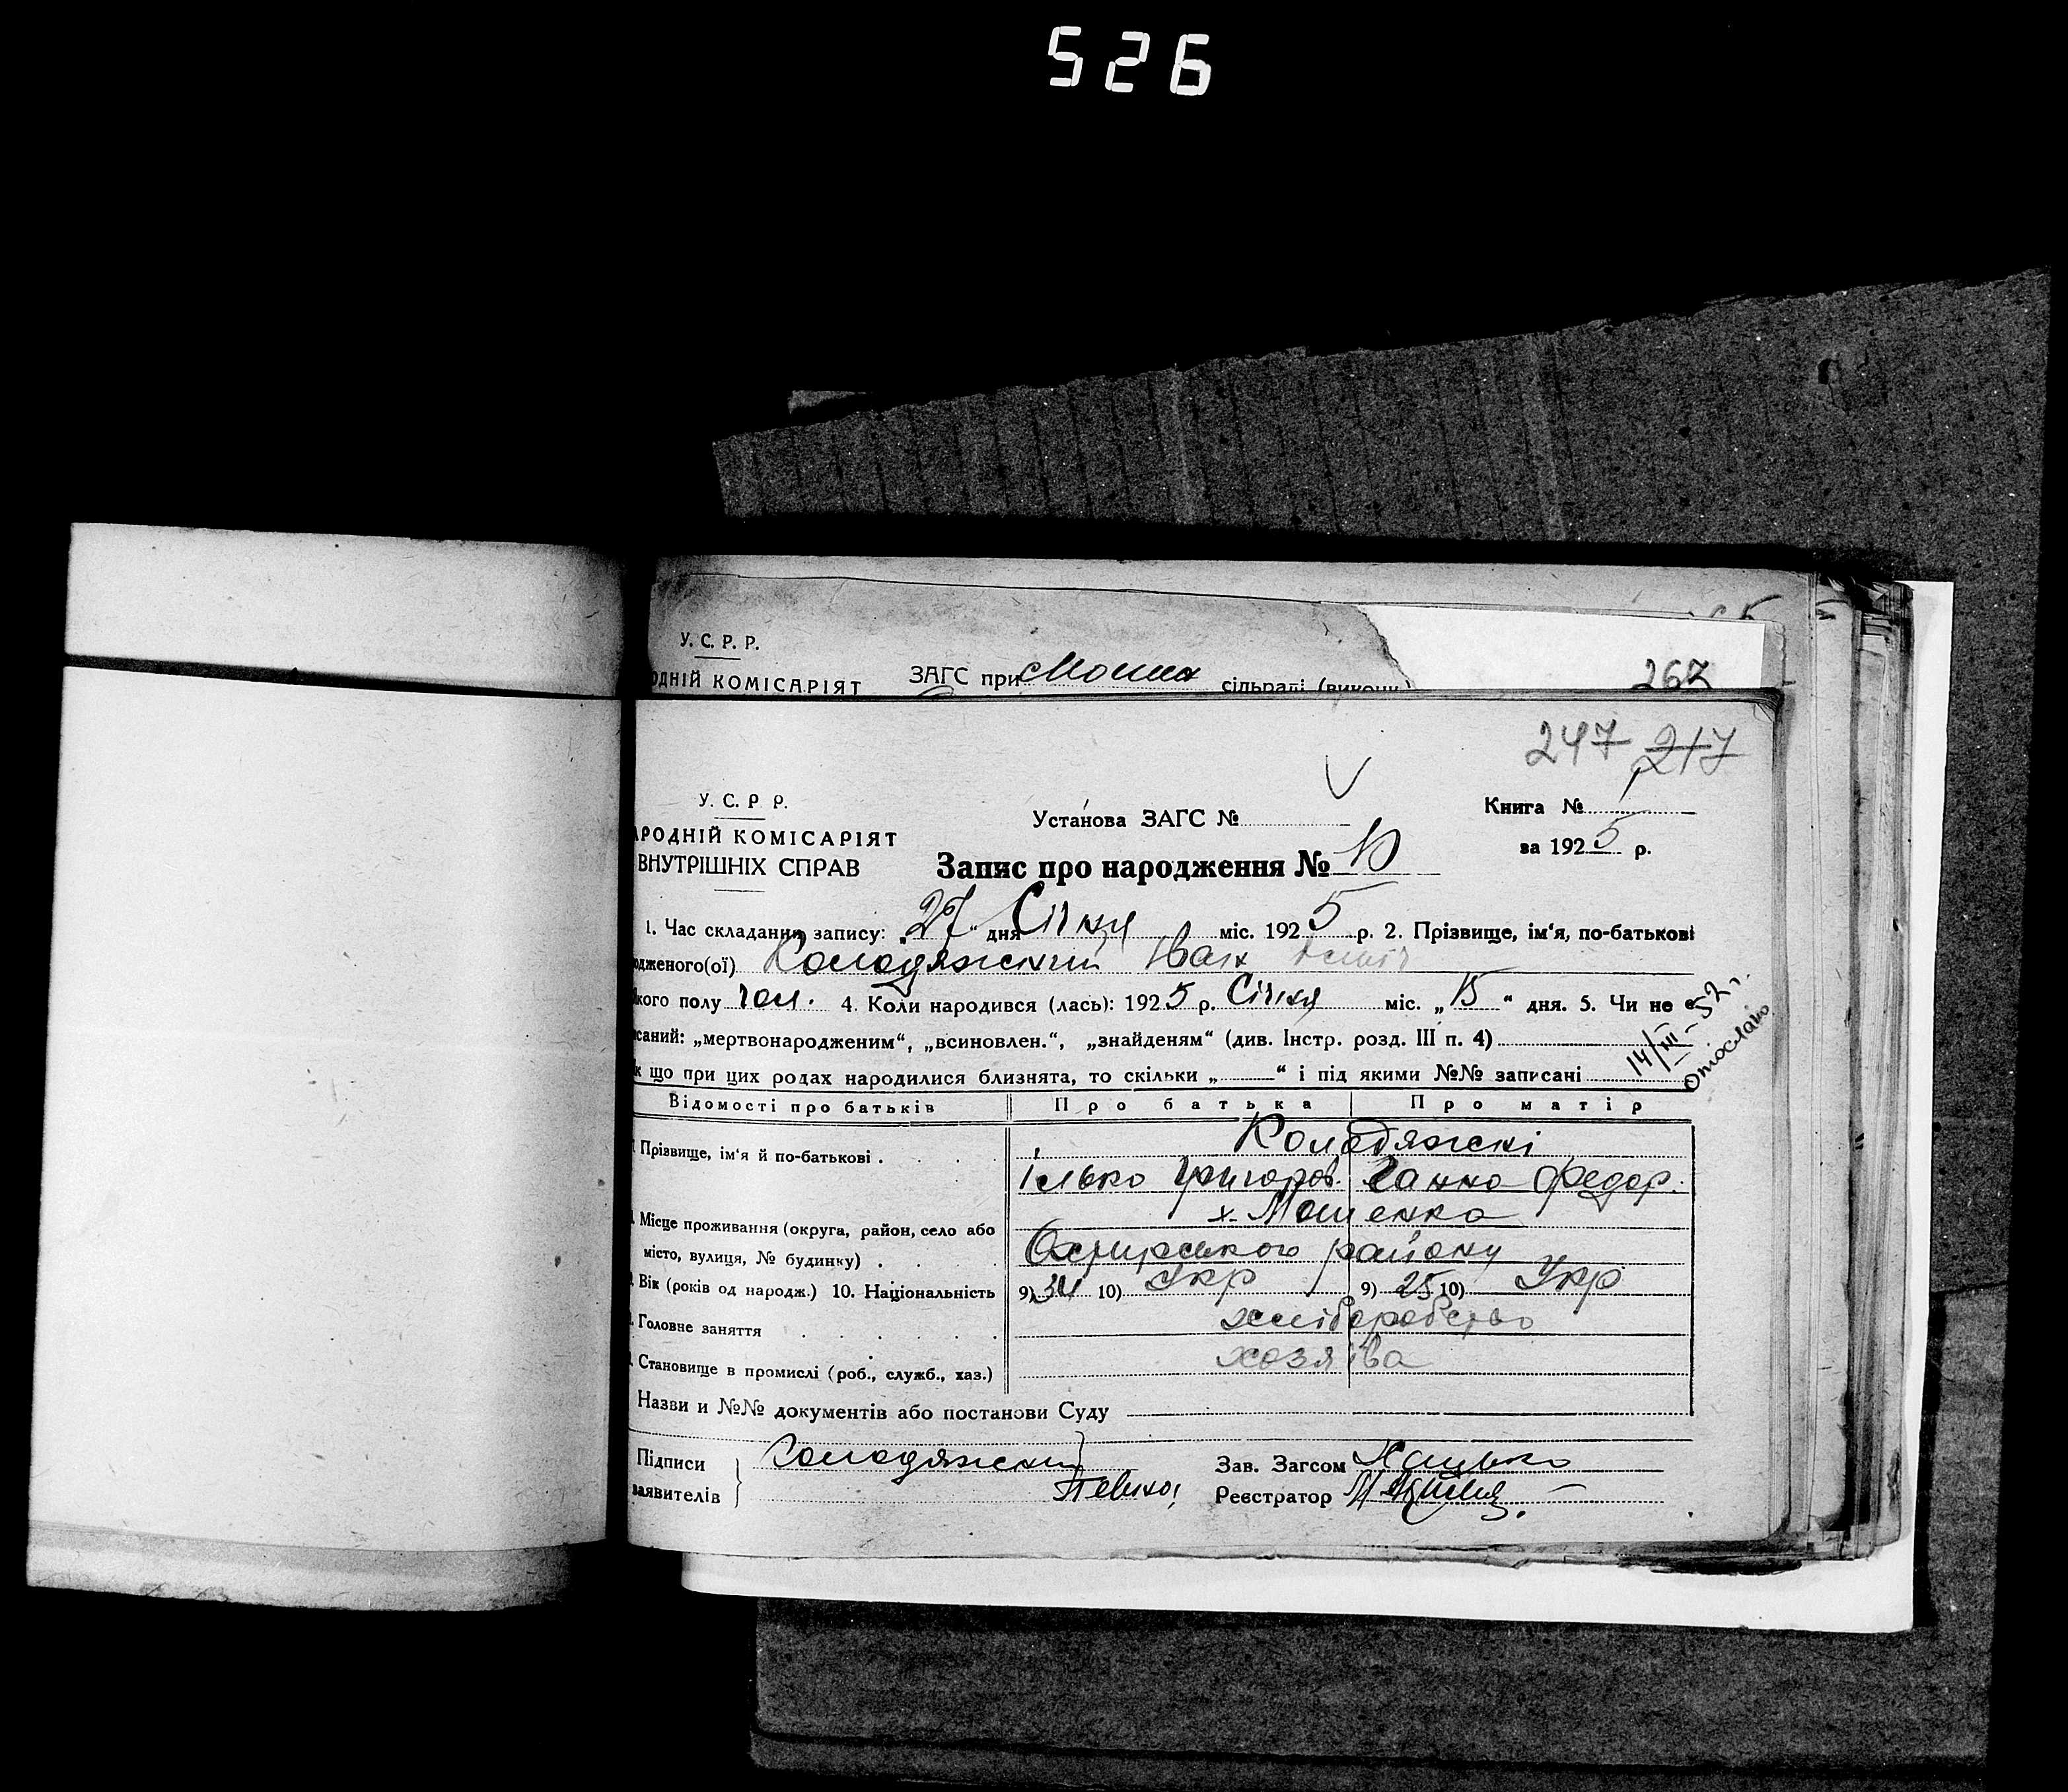 526
У. С. Р. Р.
ОДНІЙ КОМІСАРІЯТ ЗАГС при сільраді (викону
267
247 217
У. С. Р. Р.
Установа ЗАГС № Книга №
АРОДНІЙ КОМІСАРІЯТ
за 1925 р.
ВНУТРІШНІХ СПРАВ Запис про народження № 10
1. Час складання запису: „27“ дня Січня міс. 1925 р. 2. Прізвище, ім'я, по-батькові
одженого(ої) Колодяжний Іван
якого полу чол. 4. Коли народився (лась): 1925 р. Січня міс. „15“ дня. 5. Чи не є
исаний: „мертвонародженим“, „всиновлен.“, „знайденям“ (див. Інстр. розд. III п. 4)
к що при цих родах народилися близнята, то скільки „ “ і під якими №№ записані
14/III-52 г.
Отослано
Відомості про батьків Про батька Про матір
Колодяжні
Прізвище, ім'я й по-батькові .
Ілько Григоров. Ганна Федор.
х. Мошенка
Місце проживання (округа, район, село або
місто, вулиця, № будинку) . Охтирського району
Вік (років од народж.) 10. Національність 9) 34 10) Укр 9) 25 10) Укр
Головне заняття хліборобство
Становище в промислі (роб., служб., хаз.) хозяїва
Назви и №№ документів або постанови Суду
Підписи Колодяжний Зав. Загсом
заявителів Реєстратор